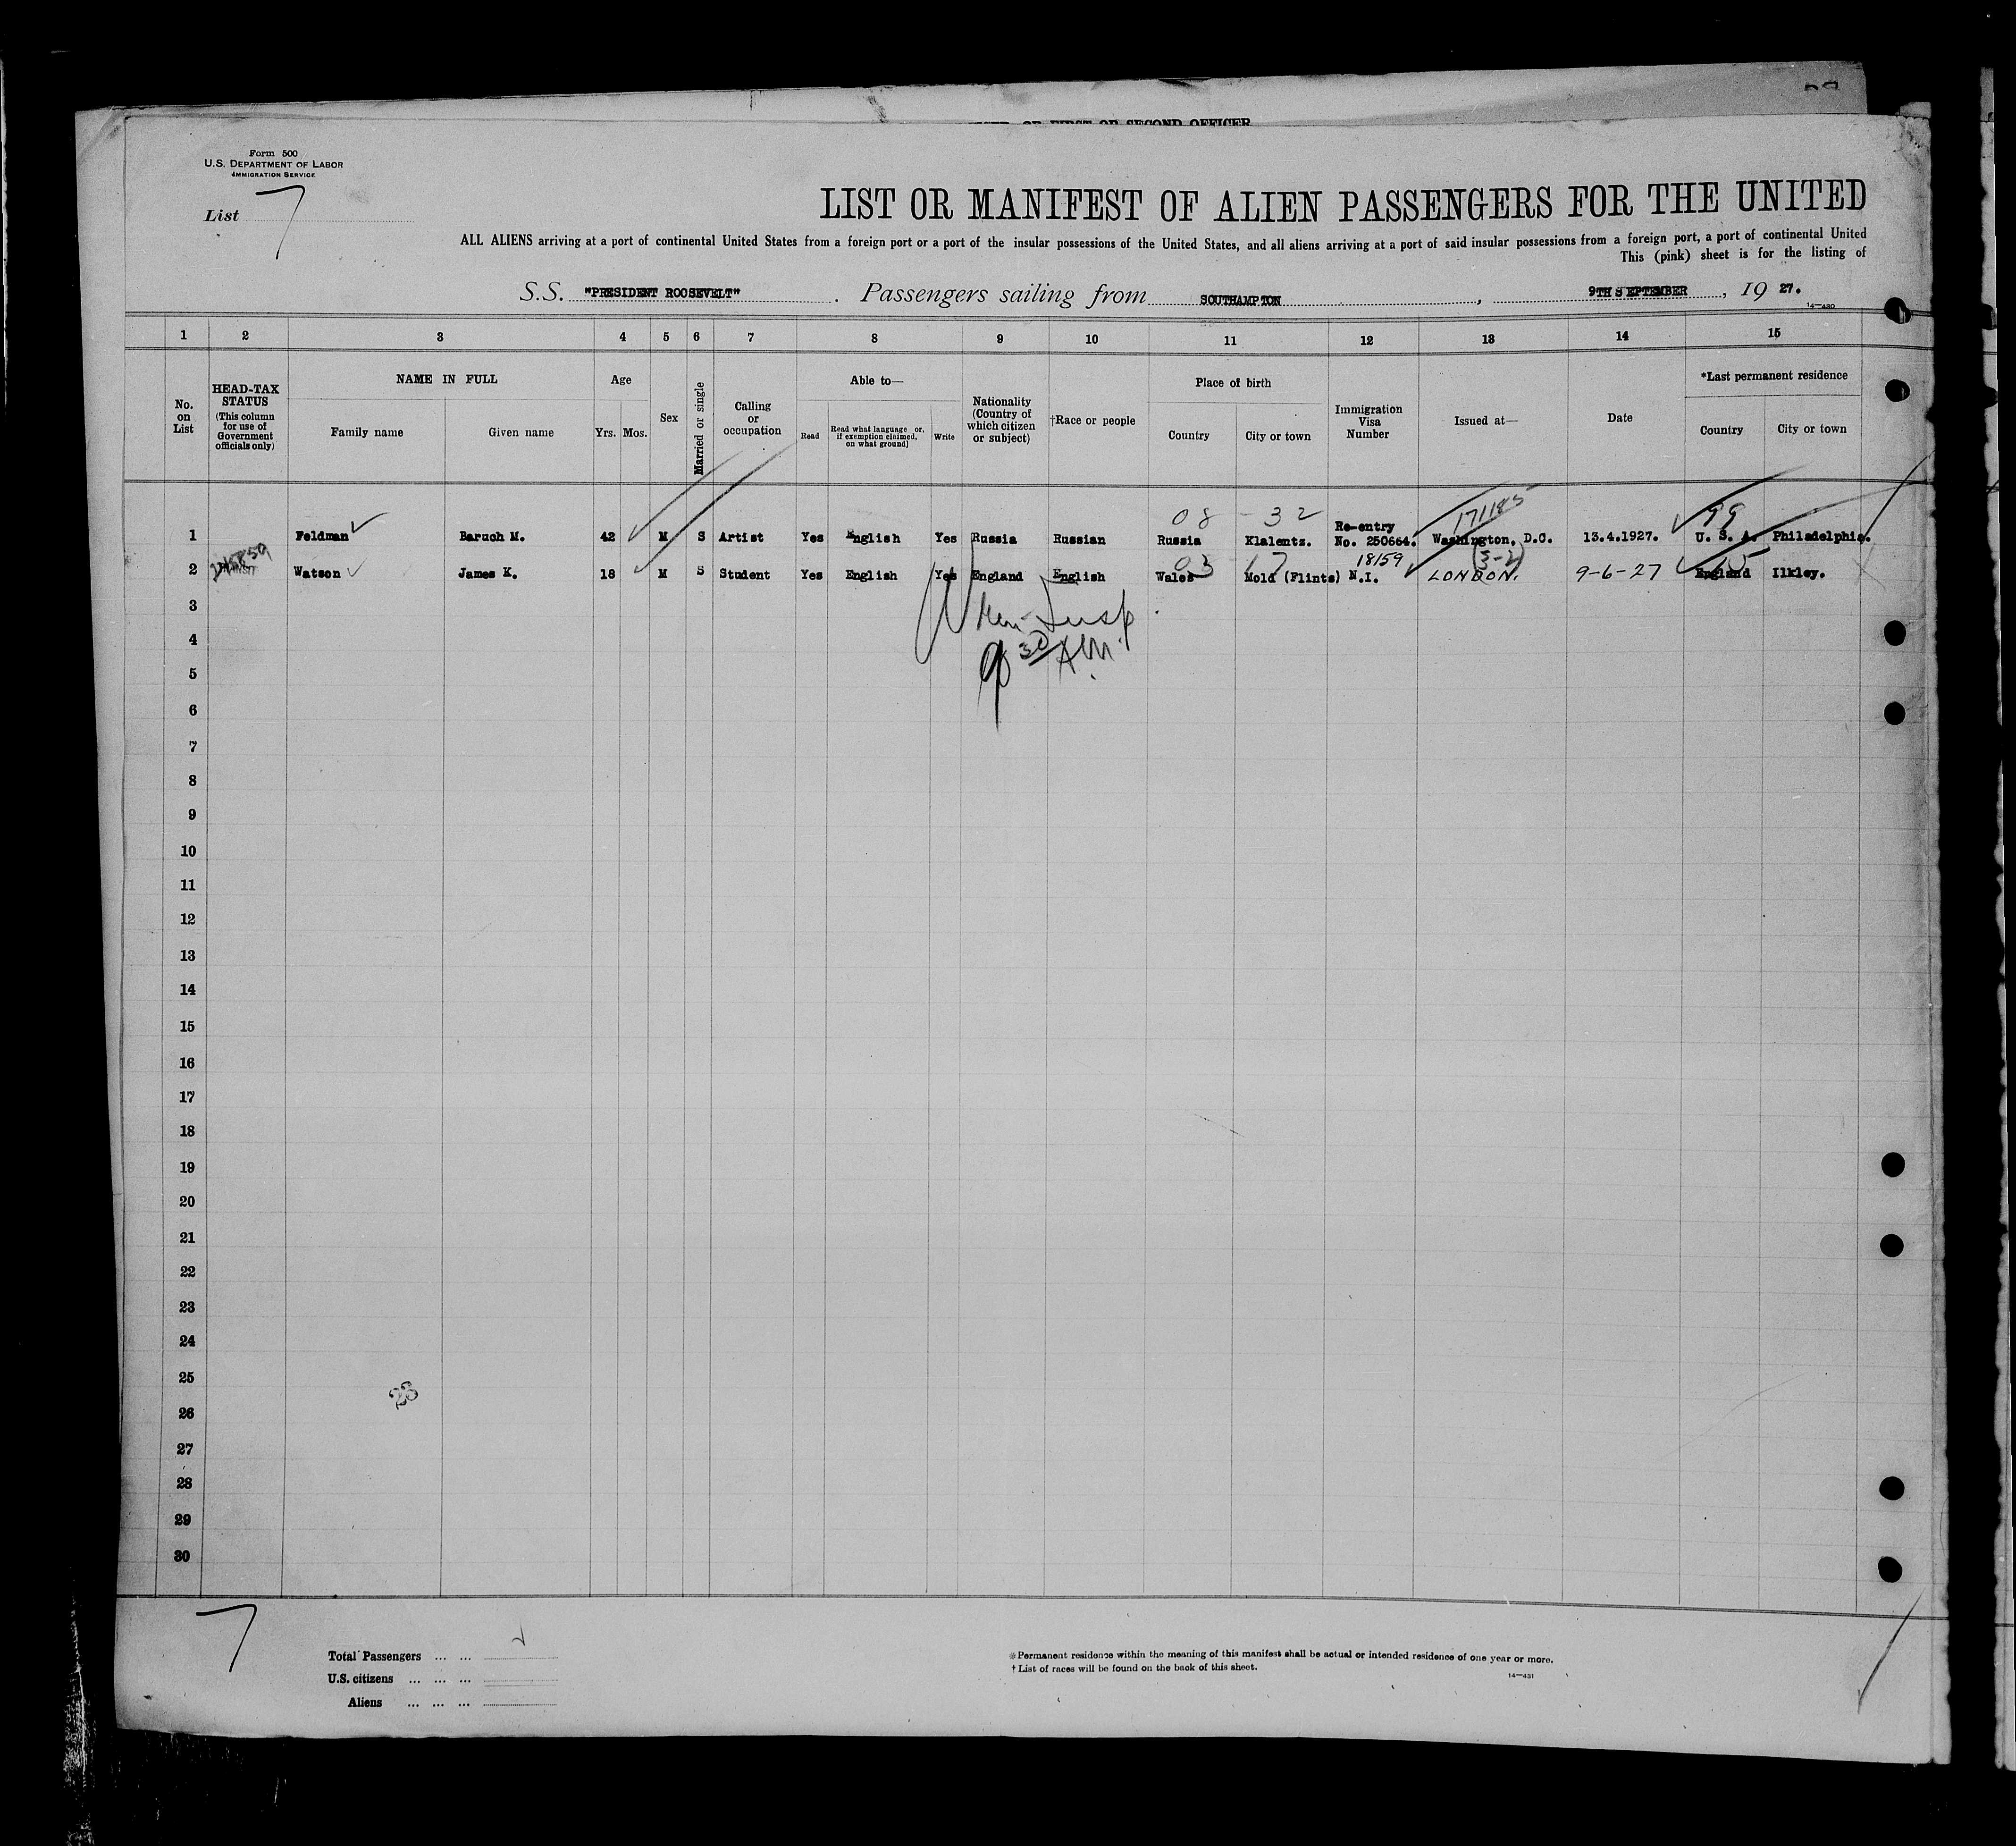 OR FIRST OR SECOND OFFICER
Form 500
U.S. DEPARTMENT OF LABOR
IMMIGRATION SERVICE
List 7
LIST OR MANIFEST OF ALIEN PASSENGERS FOR THE UNITED
ALL ALIENS arriving at a port of continental United States from a foreign port or a port of the insular possessions of the United States, and all aliens arriving at a port of said insular possessions from a foreign port, a port of continental United
This (pink) sheet is for the listing of
S.S. "PRESIDENT ROOSEVELT". Passengers sailing from SOUTHAMPTON, 9TH SEPTEMBER, 19 27.
14—430
1 2 3 4 5 6 7 8 9 10 11 12 13 14 15
No. on List
HEAD-TAX STATUS (This column for use of Government officials only)
NAME IN FULL
Family name Given name
Age
Yrs. Mos.
Sex
Married or single
Calling or occupation
Able to—
Read Read what language or, if exemption claimed, on what ground) Write
Nationality (Country of which citizen or subject)
†Race or people
Place of birth
Country City or town
Immigration Visa Number
Issued at—
Date
*Last permanent residence
Country City or town
08 - 32 171185 99
1 Feldman Baruch M. 42 M S Artist Yes English Yes Russia Russian Russia Klalentz. Re-entry No. 250664. Washington, D.C. 13.4.1927. U. S. A. Philadelphia.
03 17 18159 (3-2) 15
2 Watson James K. 18 M S Student Yes English Yes England English Wales Mold (Flints) N.I. LONDON. 9-6-27 England Ilkley.
3
4 9 30 AM.
5
6
7
8
9
10
11
12
13
14
15
16
17
18
19
20
21
22
23
24
25
23
26
27
28
29
30
7
Total Passengers ... ...
U.S. citizens ... ... ...
Aliens ... ... ...
*Permanent residence within the meaning of this manifest shall be actual or intended residence of one year or more.
†List of races will be found on the back of this sheet.
14—431